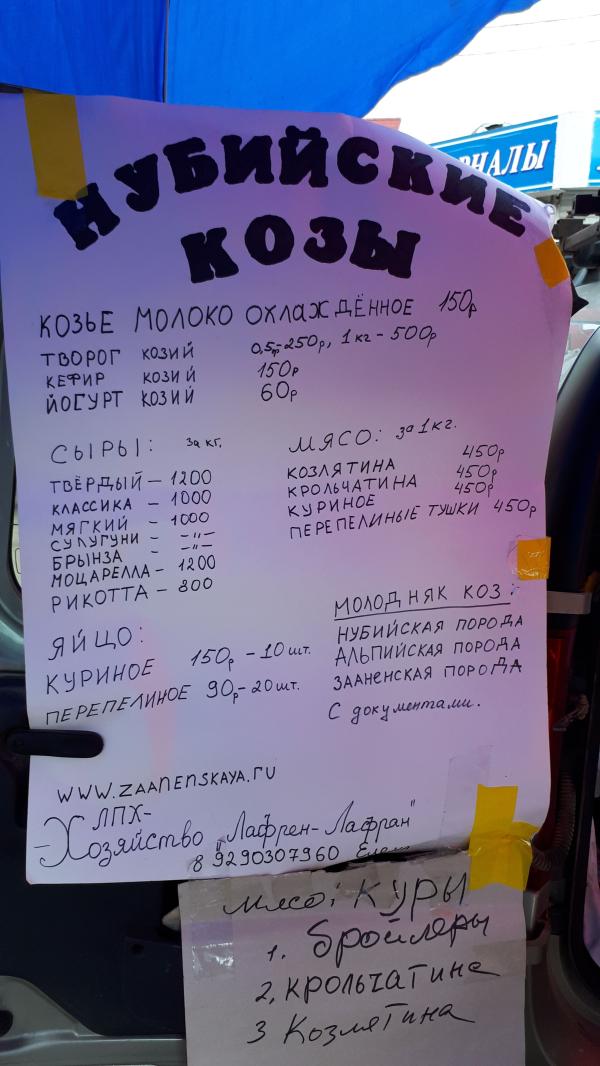 РНАЛЫ
НУБИЙСКИЕ
КОЗЫ
КОЗЬЕ МОЛОКО ОХЛАЖДЁННОЕ 150р
ТВОРОГ КОЗИЙ 0,5р-250р, 1кг-500р
КЕФИР КОЗИЙ 150р
ЙОГУРТ КОЗИЙ 60р
СЫРЫ: за кг.
ТВЁРДЫЙ - 1200
КЛАССИКА - 1000
МЯГКИЙ - 1000
СУЛУГУНИ - -"-
БРЫНЗА - -"-
МОЦАРЕЛЛА - 1200
РИКОТТА - 800
МЯСО: за 1кг.
КОЗЛЯТИНА 450р
КРОЛЬЧАТИНА 450р
КУРИНОЕ 450р
ПЕРЕПЕЛИНЫЕ ТУШКИ 450р
ЯЙЦО:
КУРИНОЕ 150р - 10 шт.
ПЕРЕПЕЛИНОЕ 90р - 20 шт.
МОЛОДНЯК КОЗ:
НУБИЙСКАЯ ПОРОДА
АЛЬПИЙСКАЯ ПОРОДА
ЗААНЕНСКАЯ ПОРОДА
С документами.
WWW.ZAANENSKAYA.RU
ЛПХ-
-Хозяйство "Лафрен-Лафран"
8 9290307960
Мясо: КУРЫ
1. бройлеры
2. КРОЛЬЧАТИНА
3 Козлятина